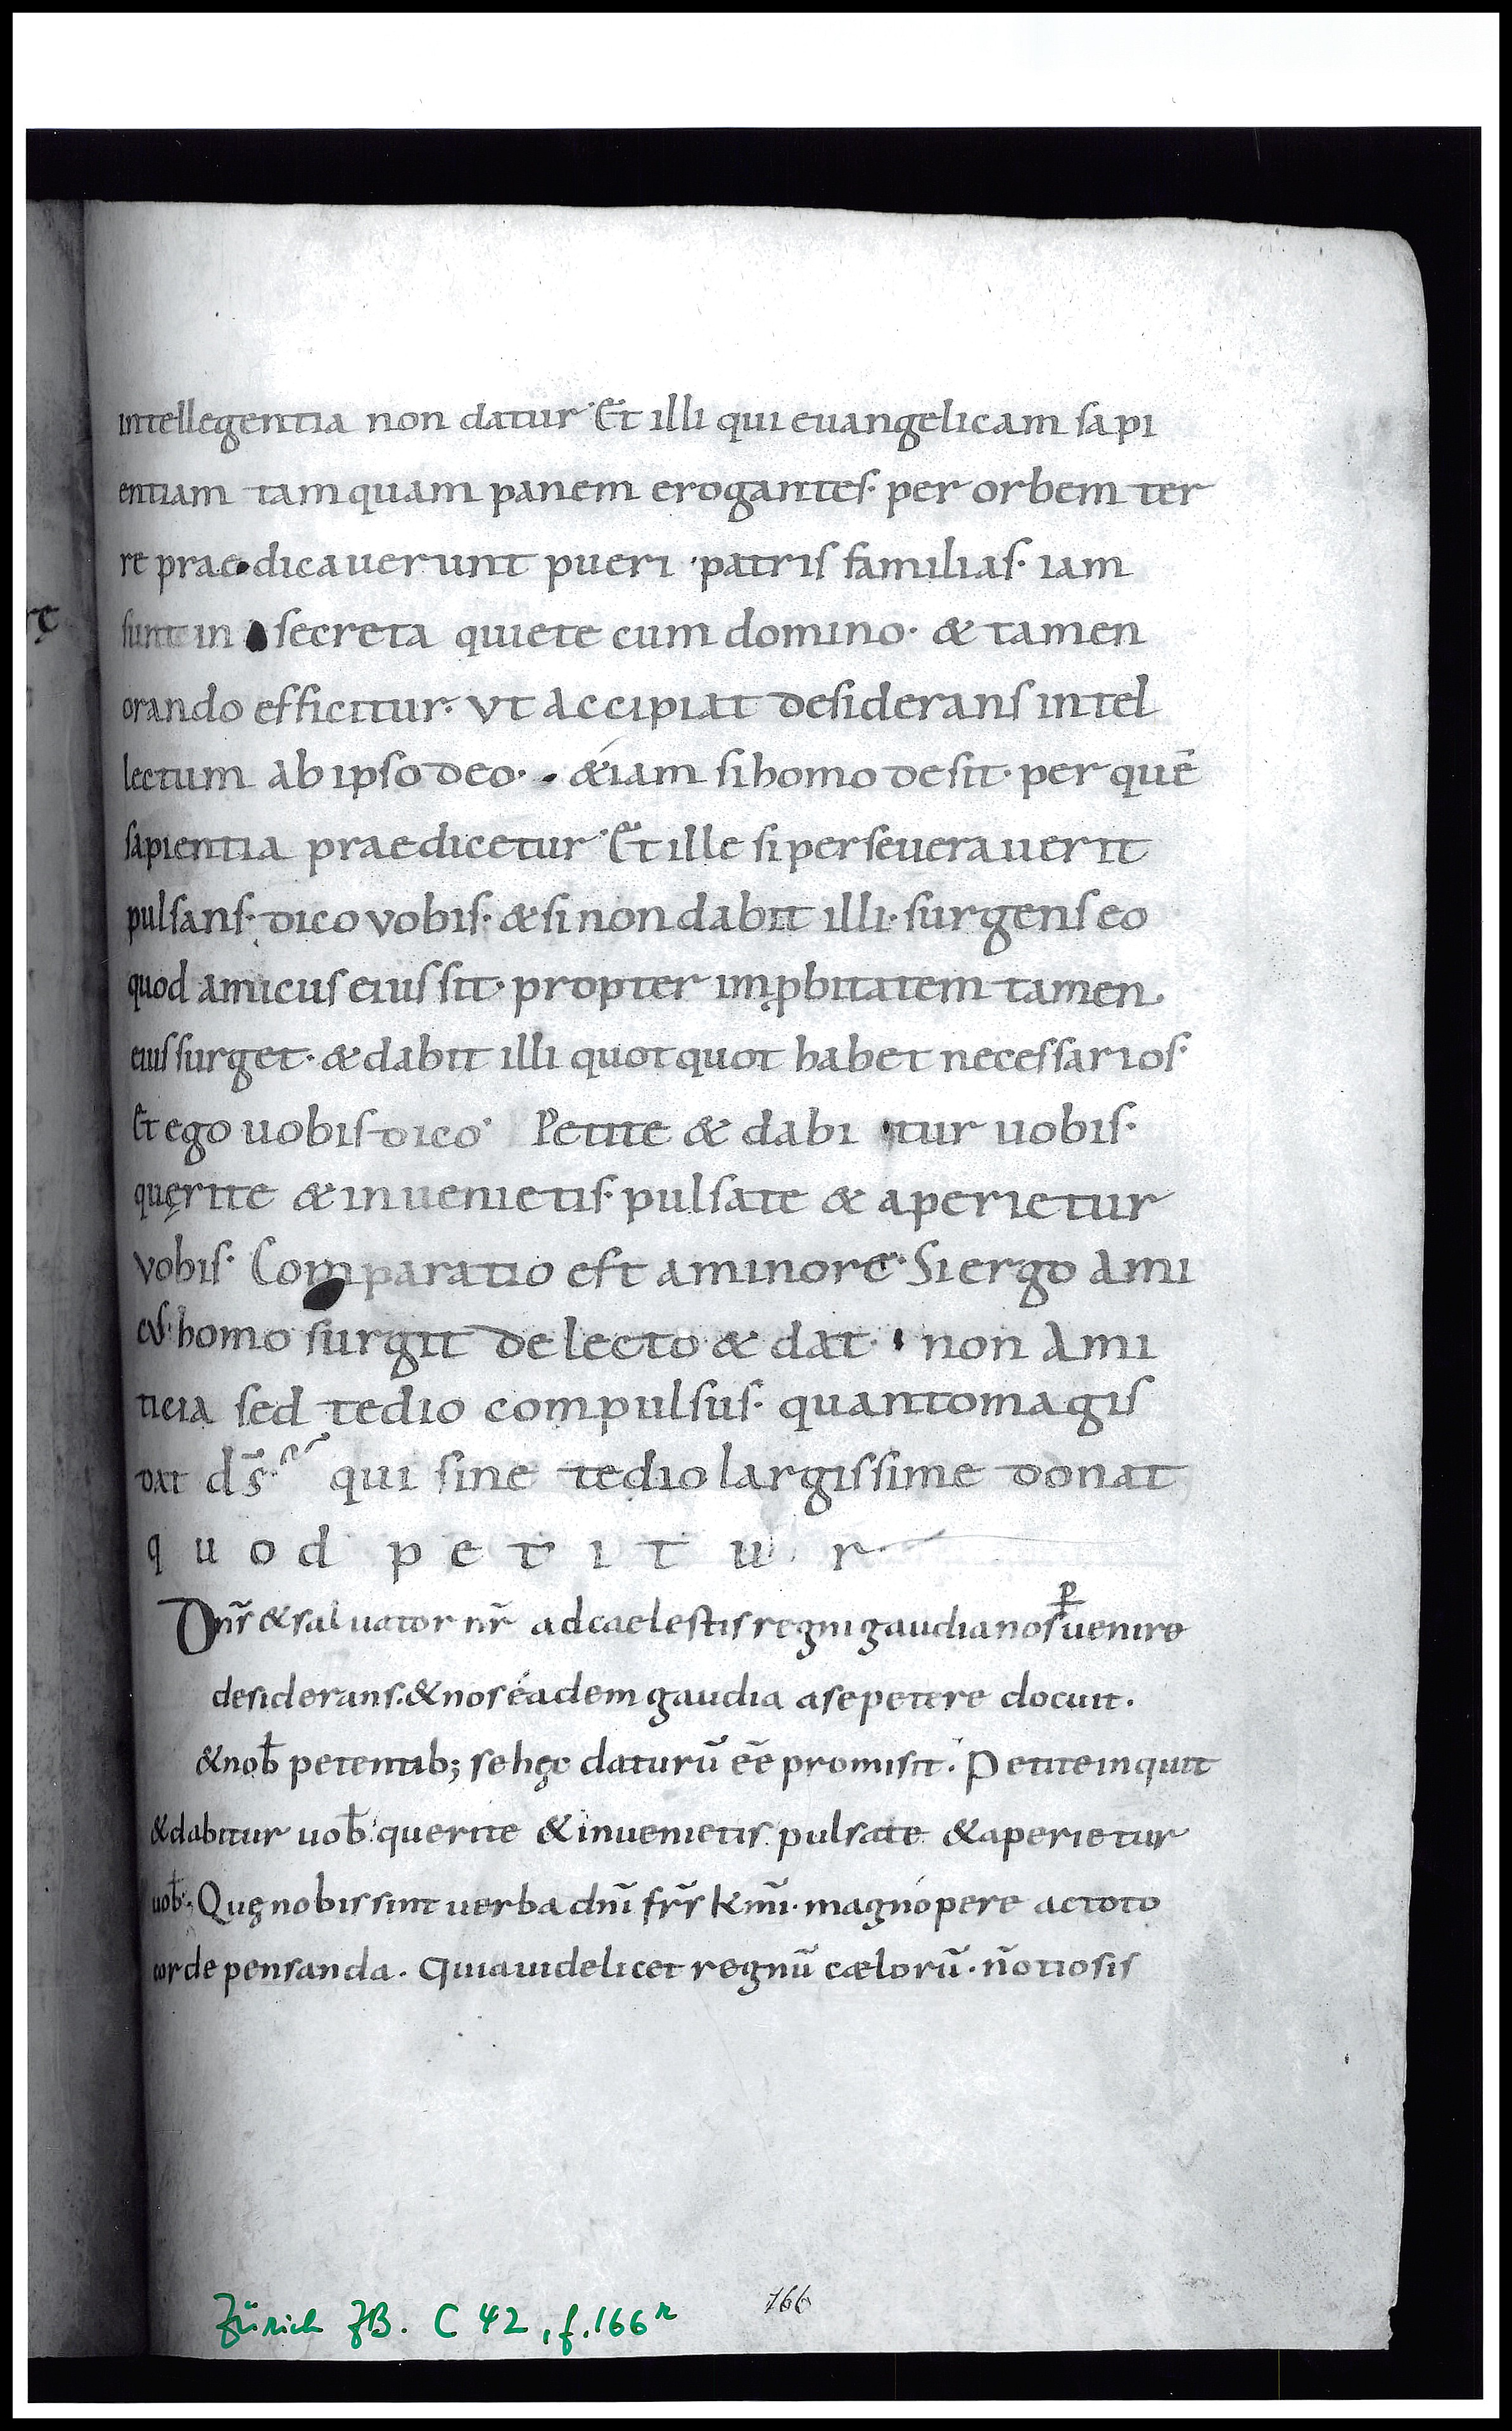 intellegentia non datur· Et illi qui euangelicam sapi
entiam tamquam panem erogantes· per orbem ter
re praedicauerunt pueri ·patris familias· iam
sunt in secreta quiete cum domino· & tamen
orando efficitur· vt accipiat desiderans intel
lectum ab ipso deo· &iam si homo desit· per quē
sapientia praedicetur· Et ille si perseuerauerit
pulsans· dico vobis· & si non dabit illi· surgens eo
quod amicus eius sit· propter imꝓbitatem tamen·
eius surget· & dabit illi quotquot habet necessarios·
Et ego uobis dico· Petite & dabi tur uobis·
quęrite & inuenietis· pulsate & aperietur
vobis· Comparatio est a minore· Si ergo ami
cus· homo surgit de lecto & dat· non ami
ticia sed tedio compulsus· quanto magis
dat ds̄· qui sine tedio largissime donat
quod petitur
Dn̄s & saluator nr̄ ad caelestis regni gaudia nos ꝑuenire
desiderans· & nos éadem gaudia a se petere docuit·
& nob̄ petentib; se hęc daturū ēe promisit· Petite inquit
& dabitur uob̄· querite & inuenietis pulsate & aperietur
uob̄· Quę nobis sunt uerba dnī frs̄ kmī· magnópere ac toto
corde pensanda· Quia uidelicet regnū cælorū· n̄ otiosis
166
Zürich ZB. C 42, f. 166r